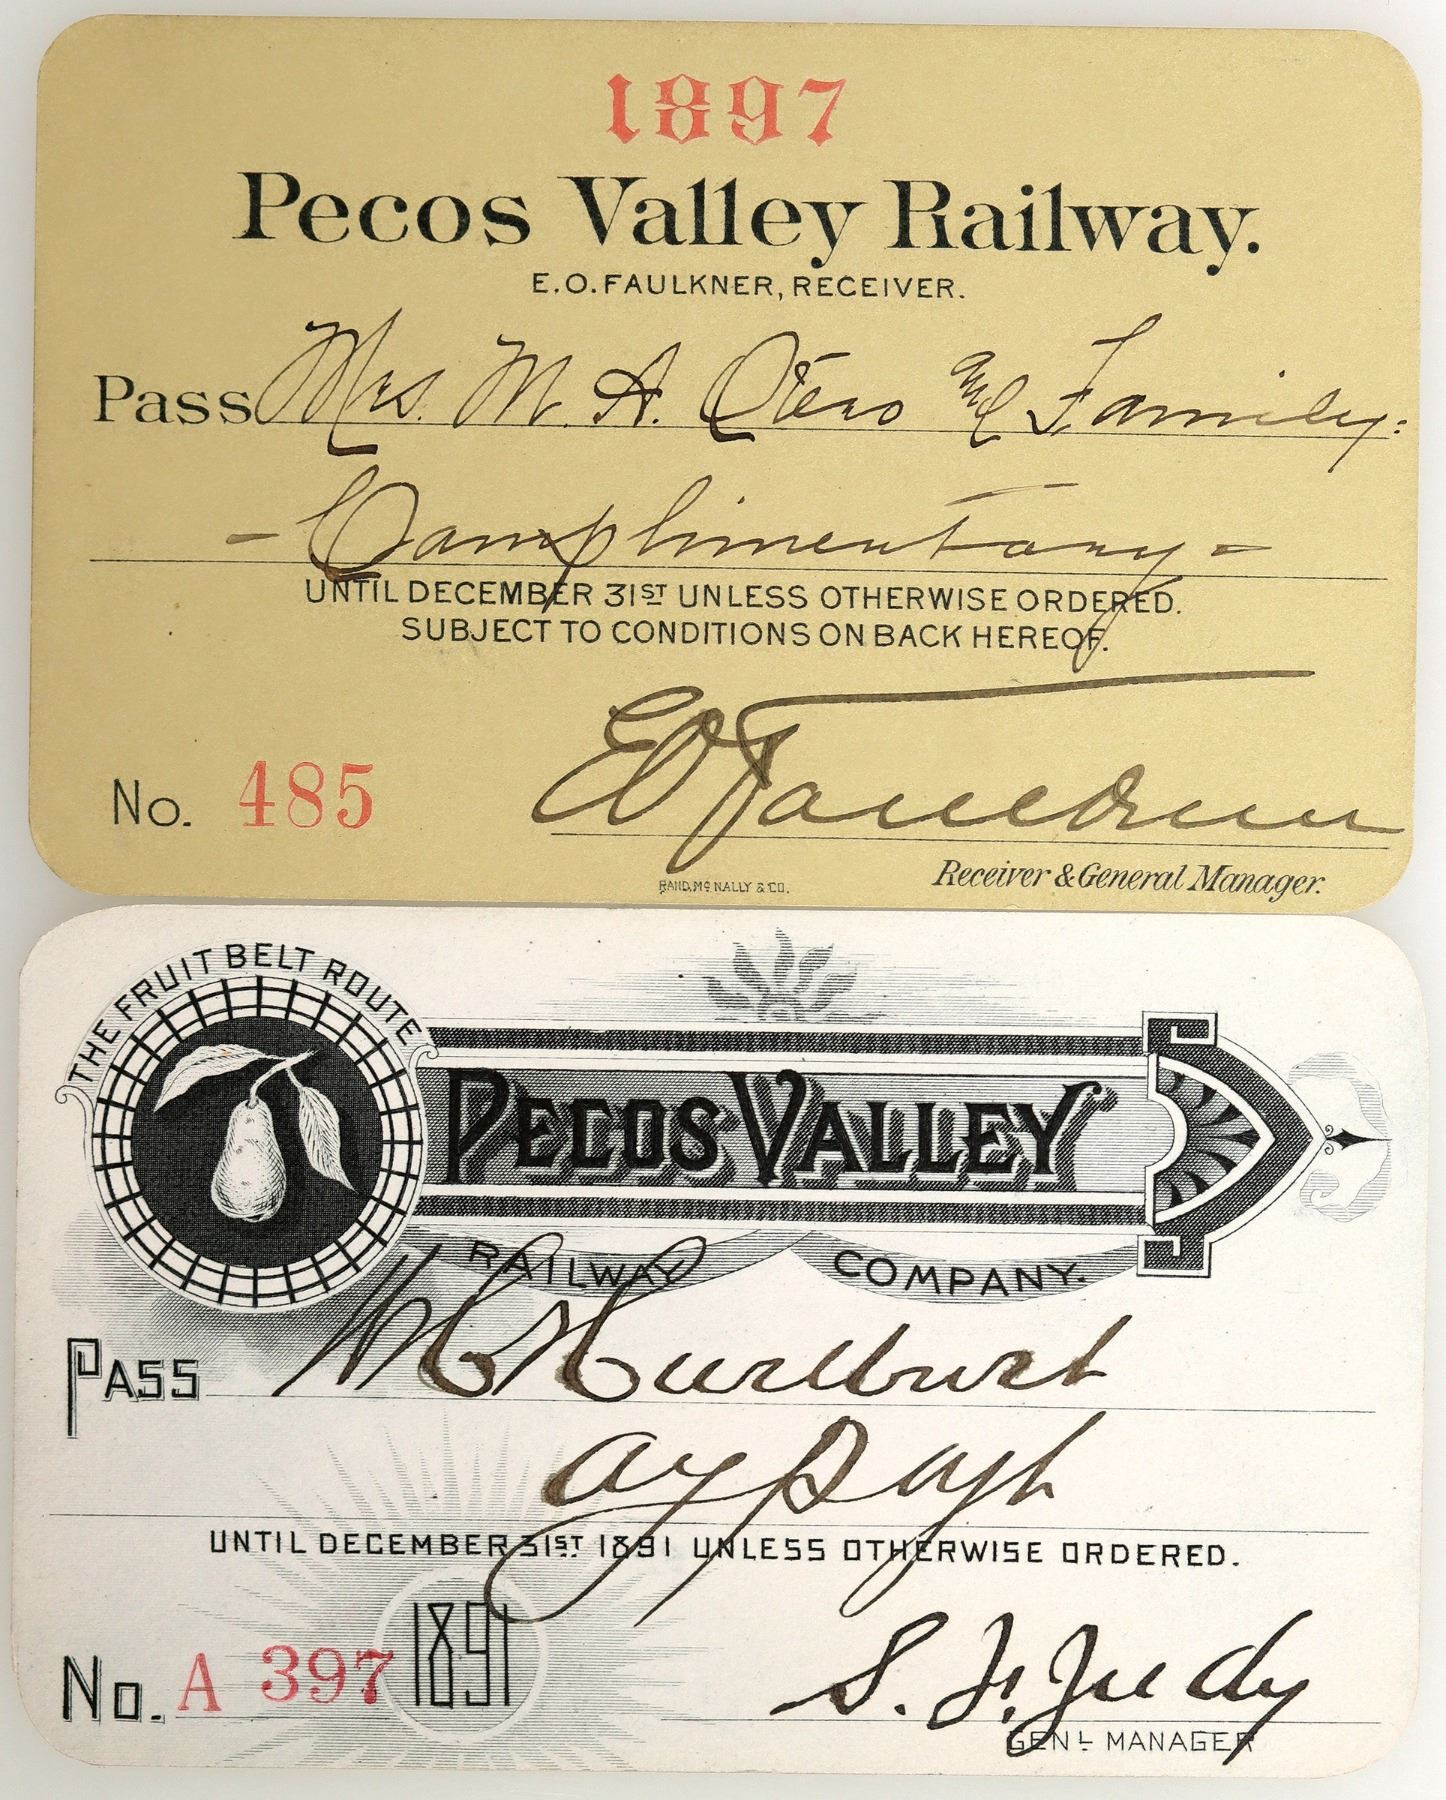 1897
Pecos Valley Railway.
E.O. FAULKNER, RECEIVER.
Pass Mrs. M. A. Otero and Family.
- Complimentary -
UNTIL DECEMBER 31ST UNLESS OTHERWISE ORDERED.
SUBJECT TO CONDITIONS ON BACK HEREOF.
No. 485
E O Faulkner
Receiver & General Manager.
RAND, McNALLY & CO.
THE FRUIT BELT ROUTE
PECOS VALLEY
RAILWAY COMPANY.
PASS Hurlburt
UNTIL DECEMBER 31ST 1891 UNLESS OTHERWISE ORDERED.
1891
No. A 397
S. J. Judy
GENL MANAGER